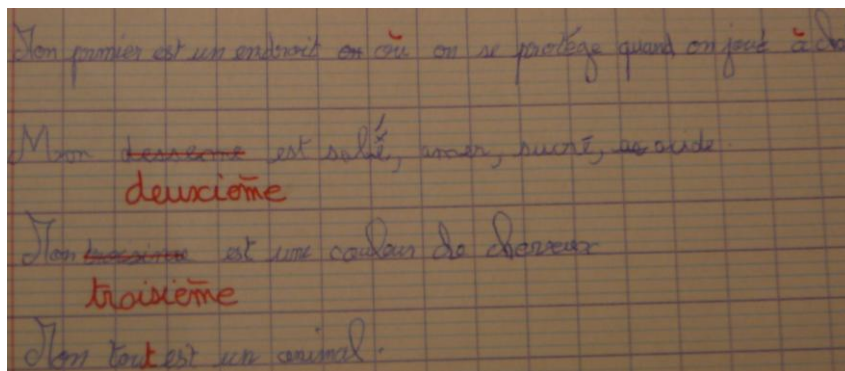 Mon premier est un endroit on où on se protège quand on joue à cha
Mon desseme est salé, amer, sucré, as acide.
deuxième
Mon est une couleur de cheveux
troisième
Mon tout est un animal.